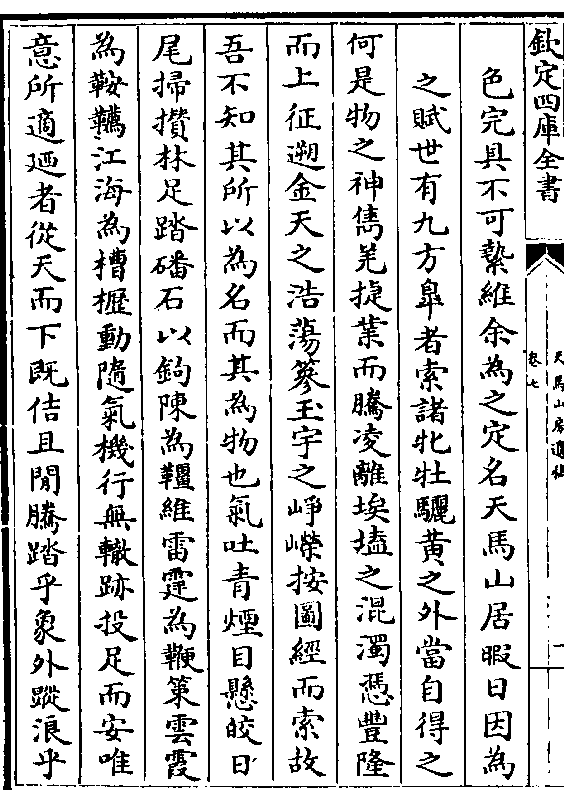 欽定四庫全書
天馬山房遺稿
卷七
色完具不可縶維余為之定名天馬山居暇日因為
之賦世有九方臯者索諸牝牡驪黃之外當自得之
何是物之神雋羌捷葉而騰凌離埃壒之混濁憑豐隆
而上征遡金天之浩蕩篸玉宇之崢嶸按圖經而索故
吾不知其所以為名而其為物也氣吐青煙目懸皎日
尾掃攢林足踏磻石以鉤陳為韁維雷霆為鞭策雲霞
為鞍韉江海為槽櫪動隨氣機行無轍跡投足而安唯
意所適廼者從天而下既佶且閒騰踏乎象外蹤浪乎